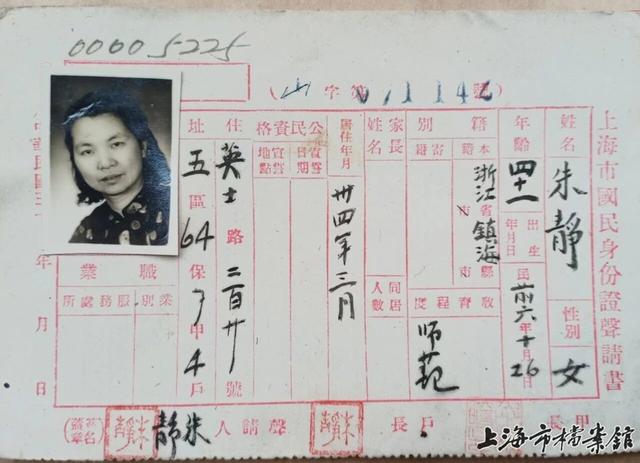 00005225
上海市國民身份證聲請書
姓名 朱靜 性別 女
年齡 四十一 出生年月日 民前六年十月26日
籍別 本籍 浙江省鎮海縣市 寄籍 市
教育程度 師范
家長姓名
同居人數
居住年月 卅四年三月
公民資格 宣誓日期 宣誓地點
住址 英士路二百廿號
五區64保 甲4戶
職業 業別 服務處所
年月日
甲長
戶長 朱靜
聲請人 朱靜 朱靜
上海市檔案館